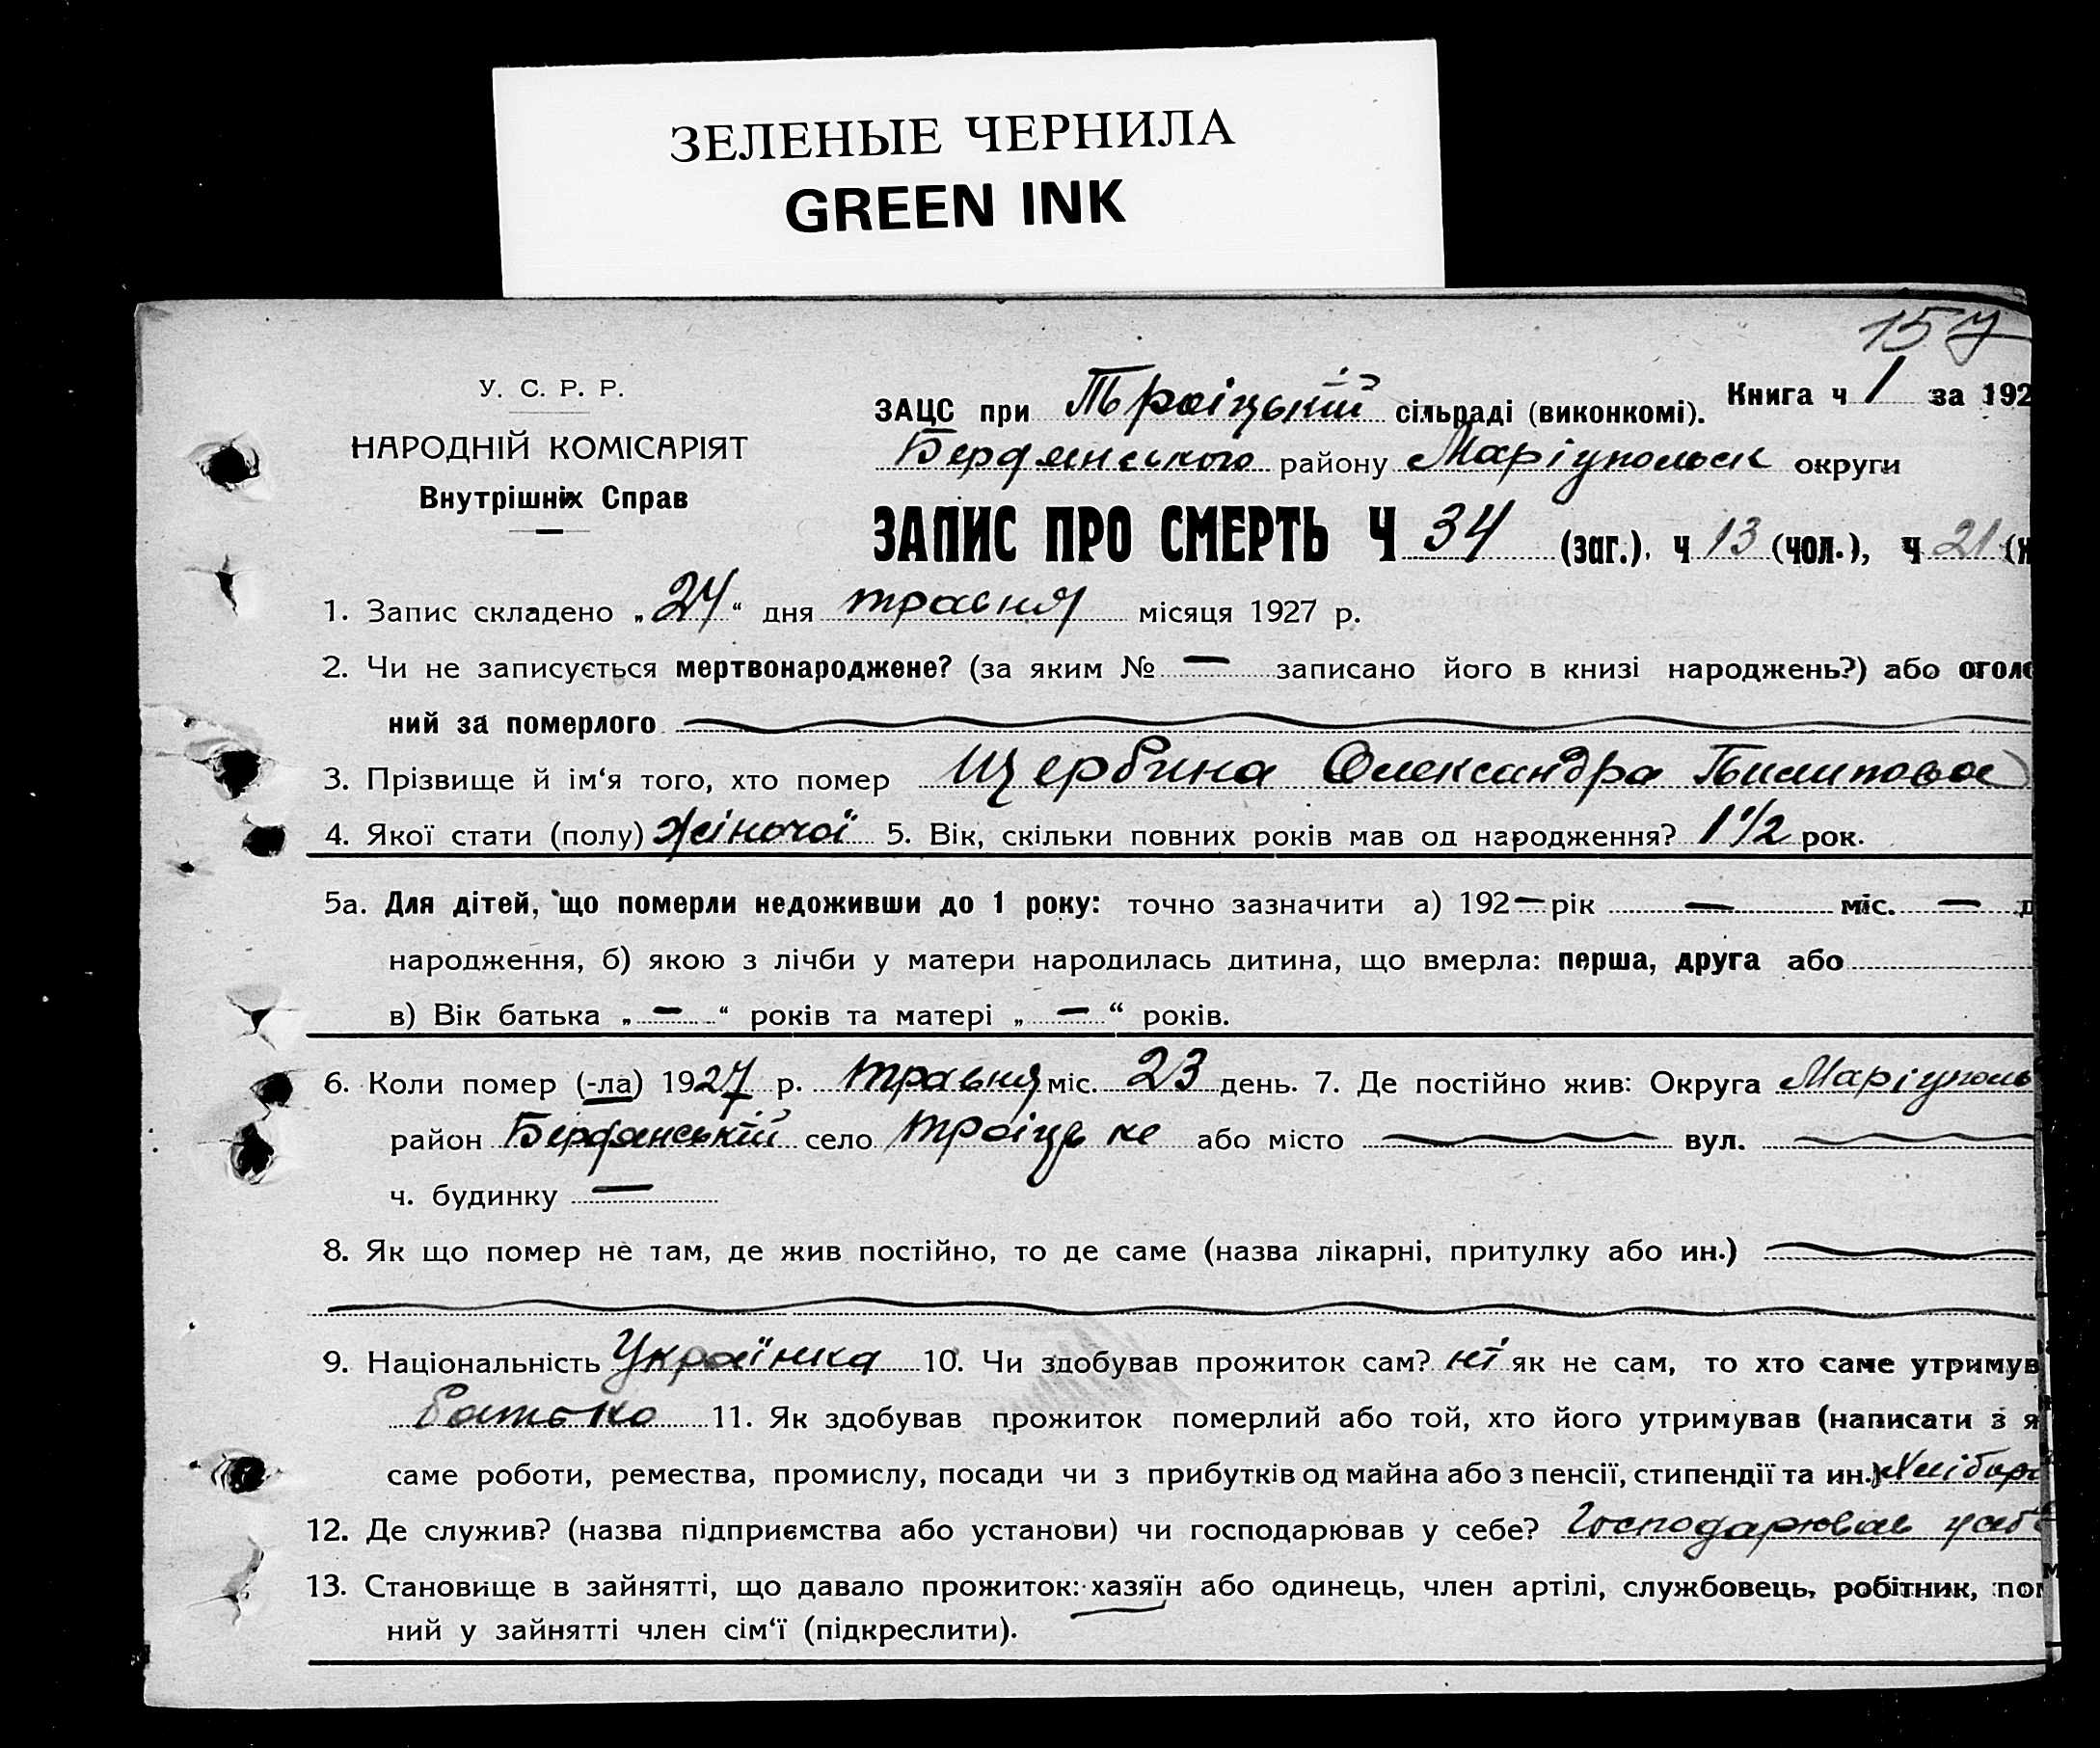 ЗЕЛЕНЫЕ ЧЕРНИЛА
GREEN INK
157
У. С. Р. Р.
НАРОДНІЙ КОМІСАРІЯТ
Внутрішніх Справ
ЗАЦС при Троіцькій сільраді (виконкомі). Книга ч 1 за 192
Бердянського району Маріупольск округи
ЗАПИС ПРО СМЕРТЬ Ч 34 (заг.). ч 13 (чол.), ч 21 (ж
1. Запис складено „24“ дня травня місяця 1927 р.
2. Чи не записується мертвонароджене? (за яким № — записано його в книзі народжень?) або оголо
ний за померлого
3. Прізвище й ім‘я того, хто помер Щербина Олександра Пилипова
4. Якої стати (полу) жіночої 5. Вік, скільки повних років мав од народження? 1 1/2 рок.
5а. Для дітей, що померли недоживши до 1 року: точно зазначити а) 192— рік — міс. — д
народження, б) якою з лічби у матери народилась дитина, що вмерла: перша, друга або
в) Вік батька „—“ років та матері „—“ років.
6. Коли помер (-ла) 1927 р. травня міс. 23 день. 7. Де постійно жив: Округа Маріуполь
район Бердянській село Троіцьке або місто вул.
ч. будинку —
8. Як що помер не там, де жив постійно, то де саме (назва лікарні, притулку або ин.)
9. Національність Українка 10. Чи здобував прожиток сам? ні як не сам, то хто саме утримув
батько 11. Як здобував прожиток померлий або той, хто його утримував (написати з я
саме роботи, ремества, промислу, посади чи з прибутків од майна або з пенсії, стипендії та ин.) Хлібор
12. Де служив? (назва підприємства або установи) чи господарював у себе? Господарював у себе
13. Становище в зайнятті, що давало прожиток: хазяїн або одинець, член артілі, службовець, робітник, пом
ний у зайнятті член сім‘ї (підкреслити).